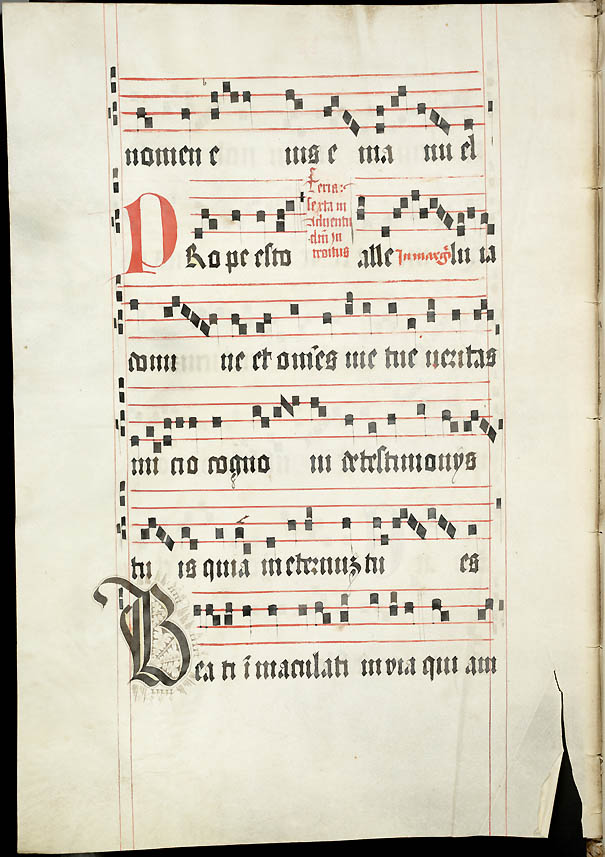 nomen e ius e ma nu el
Feria
sexta in
Aduentu
dm̄ In
troitus
PRo pe esto alle lu ia
domi ne et om̄es uie tue ueritas
ini cio cogno ui de testimonijs
tu is quia in eternuʒ tu es
Bea ti ī maculati in via qui am